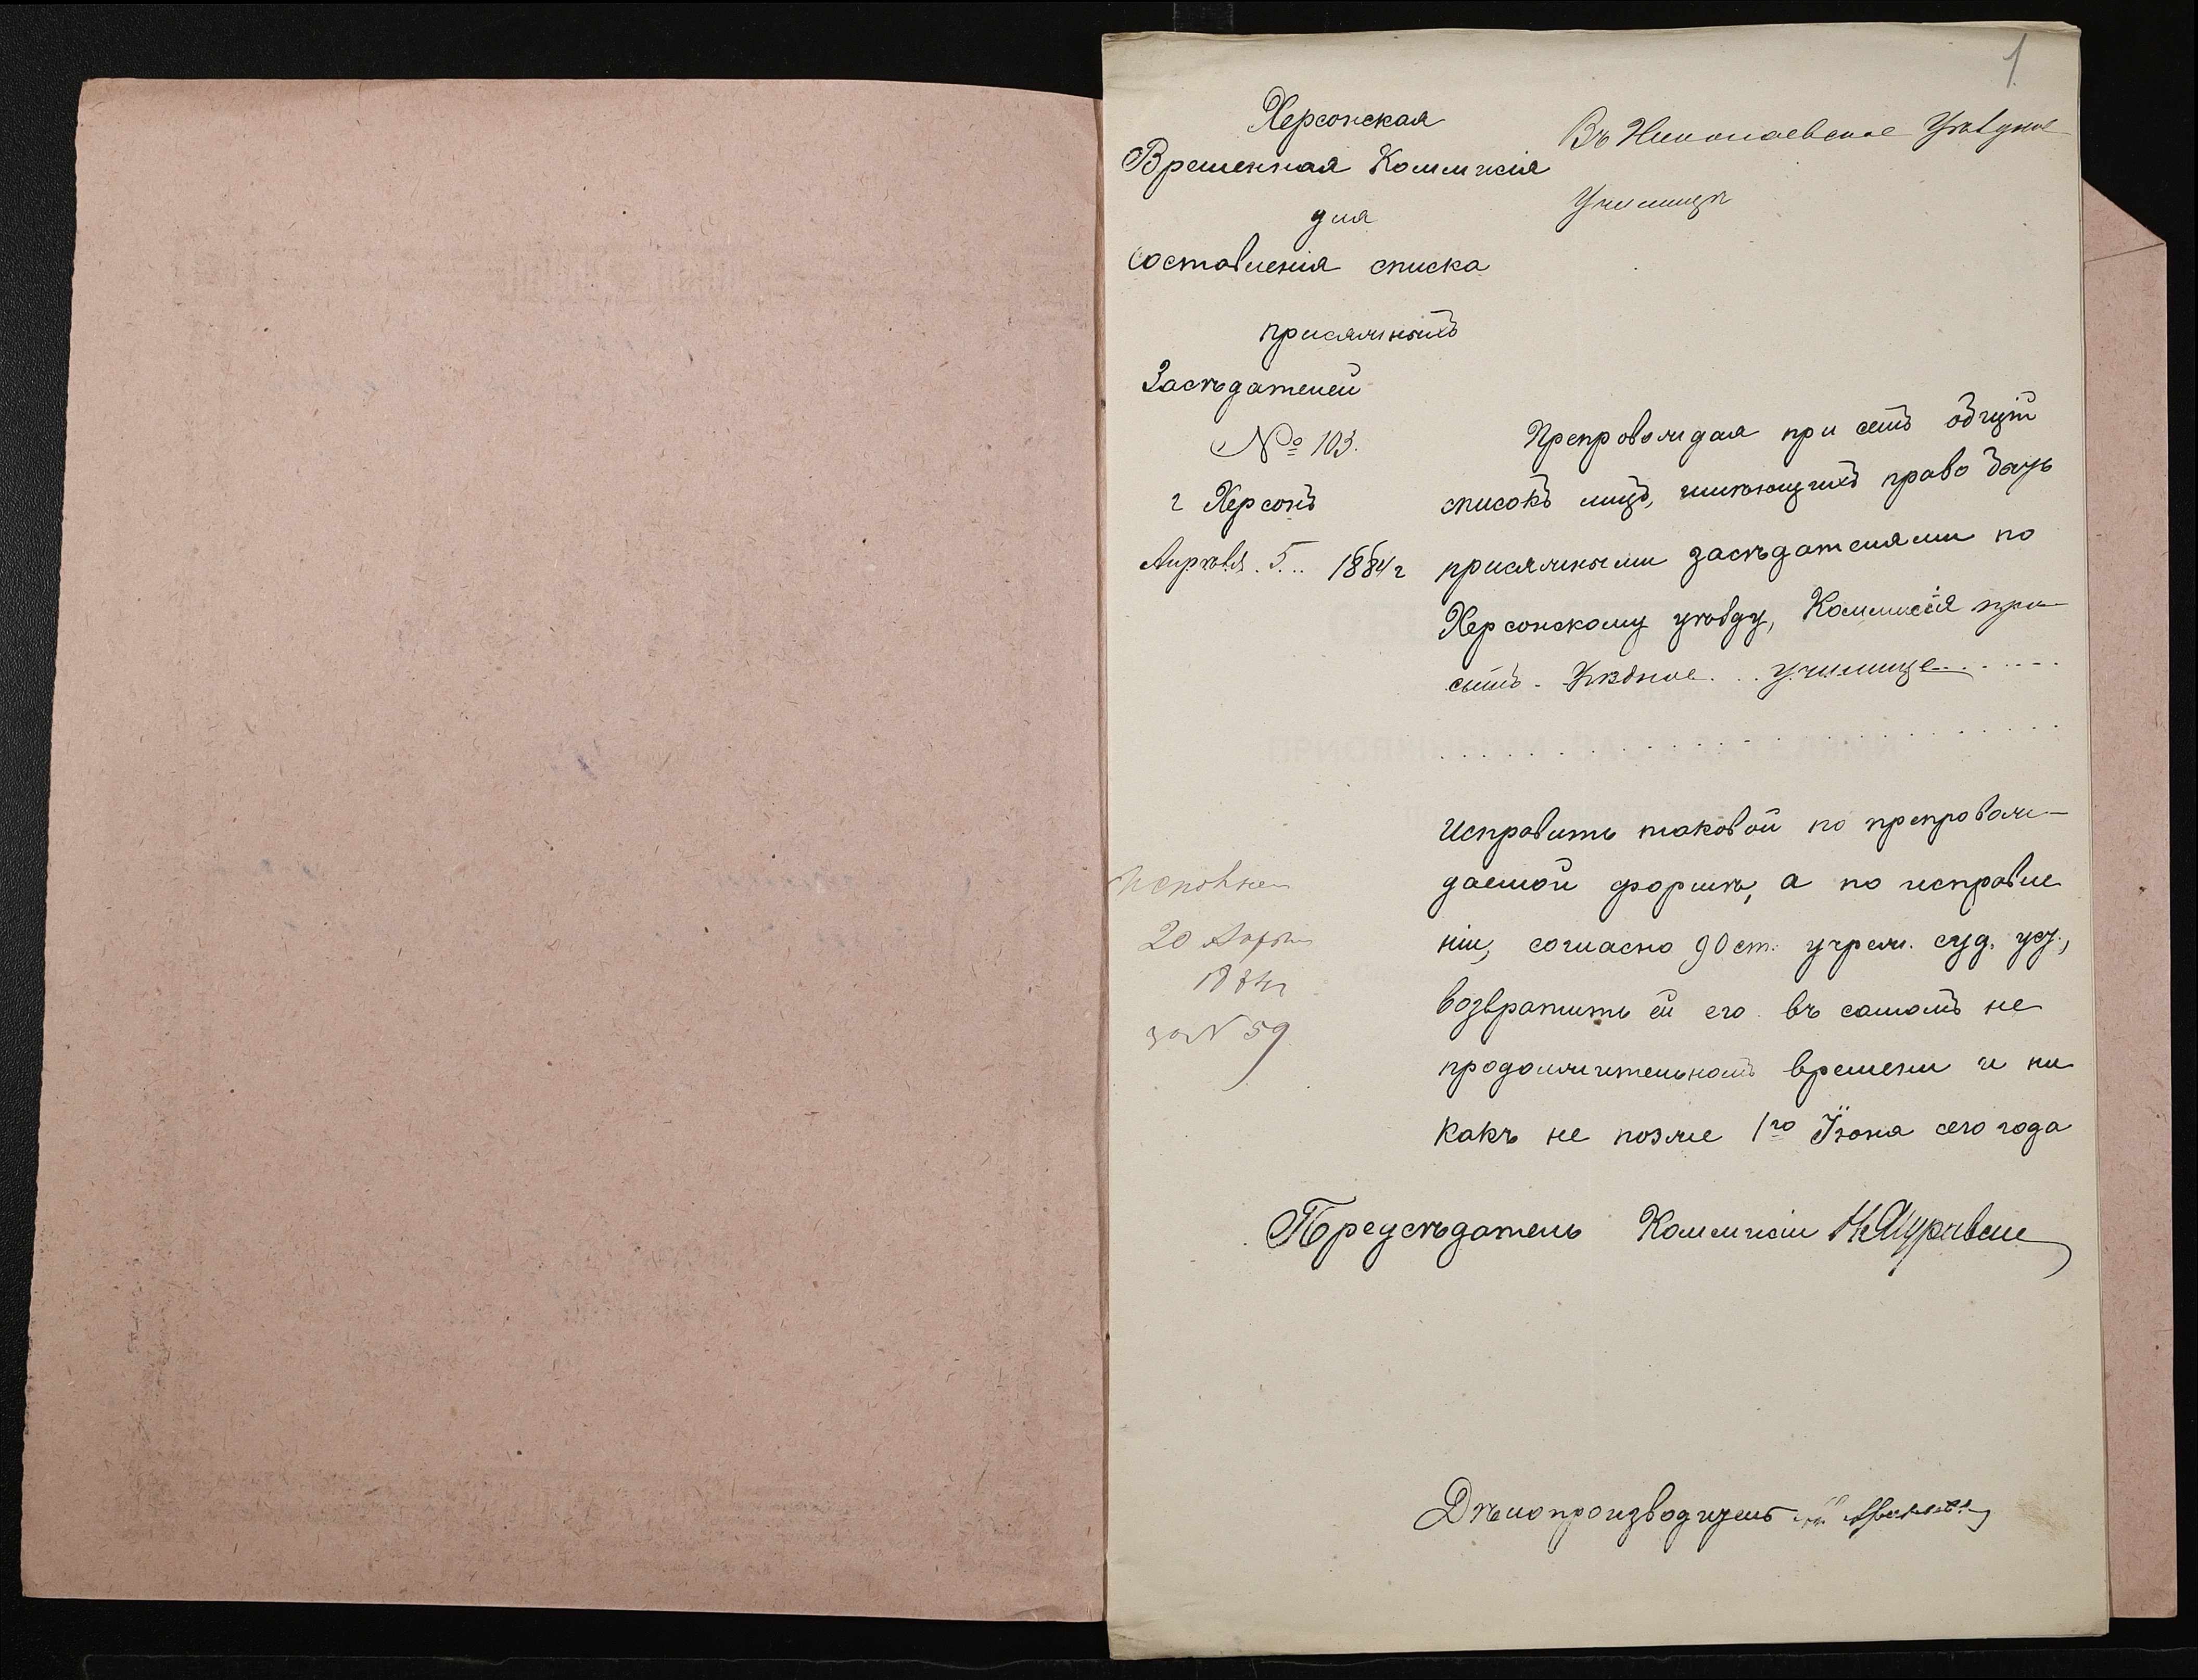 1
Херсонская
Временная Коммисія
для
составленія списка
присяжныхъ
Засѣдателей
№ 103.
г Херсонъ
Апрѣля. 5... 1884 г
Въ Николаевское Уѣздное
Училище
Препровождая при семъ общій
списокъ лицъ, имѣющихъ право быть
присяжными засѣдателями по
Херсонскому уѣзду, Коммисія про-
ситъ. Уѣздное... училище.......
исправить таковой по препровож-
даемой формѣ, а по исправле
ніи, согласно 90 ст. учреж. суд. уст.,
возвратить ей его въ самомъ не
продолжительномъ времени и ни
какъ не позже 1го Іюня сего года
Исполнен
20 Апрѣля
1884г
за N 59
Предсѣдатель Коммисіи
Дѣлопроизводитель